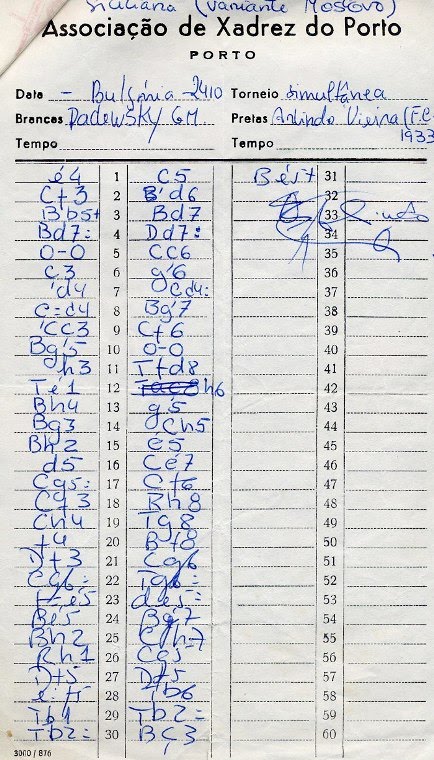 Siciliana (Variante Moscovo)
Associação de Xadrez do Porto
PORTO
Data - Bulgária 2410 Torneio simultânea
Brancas Padewsky GM Pretas Arlindo Vieira (F.C
Tempo Tempo 1933
é4 1 C5 Bé5+ 31
Cf3 2 B'd6 32
B'b5+ 3 Bd7 33
Bd7: 4 Dd7: 34
0-0 5 CC6 35
C3 6 g'6 36
'd4 7 Cd4: 37
C=d4 8 Bg'7 38
'CC3 9 Cf6 39
Bg'5 10 0-0 40
h3 11 Tfd8 41
Té1 12 h6 42
Bh4 13 g5 43
Bg3 14 Ch5 44
Bh2 15 é5 45
d5 16 Cé7 46
Cg5: 17 Cf6 47
Cf3 18 Rh8 48
Ch4 19 Tg8 49
f4 20 Bf8 50
Df3 21 Cg6 51
Cg6: 22 Tg6: 52
f=é5 23 dé5: 53
Bé5 24 Bg7 54
Bh2 25 Ch7 55
Rh1 26 Cg5 56
Df5 27 Df5 57
é:f5 28 Tb6 58
Tb1 29 Tb2= 59
Tb2= 30 BC3 60
3000 / 876